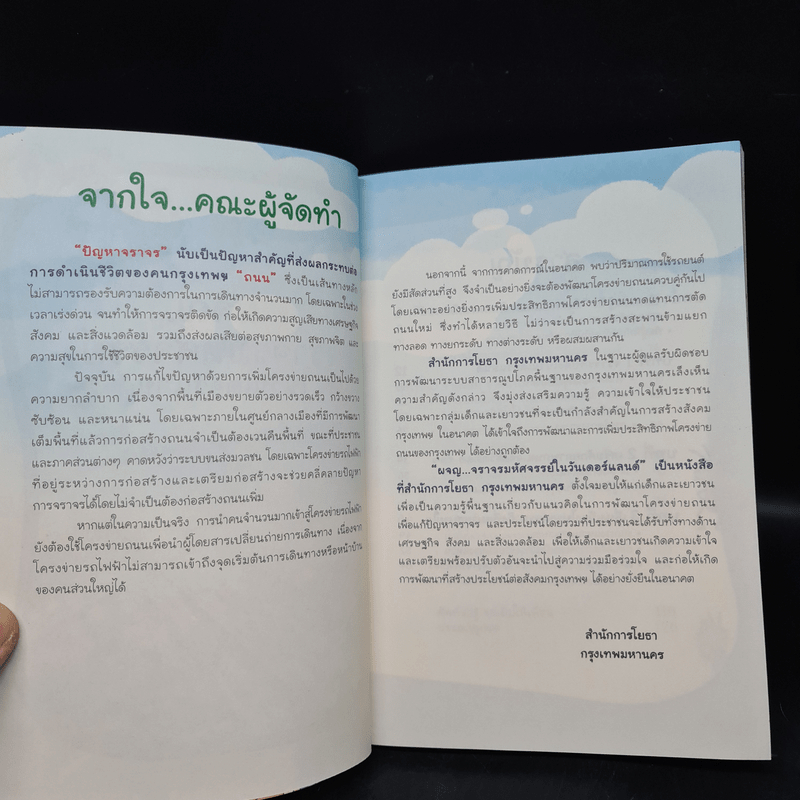 จากใจ...คณะผู้จัดทำ
"ปัญหาจราจร" นับเป็นปัญหาสำคัญที่ส่งผลกระทบต่อ
การดำเนินชีวิตของคนกรุงเทพฯ "ถนน" ซึ่งเป็นเส้นทางหลัก
ไม่สามารถรองรับความต้องการในการเดินทางจำนวนมาก โดยเฉพาะในช่วง
เวลาเร่งด่วน จนทำให้การจราจรติดขัด ก่อให้เกิดความสูญเสียทางเศรษฐกิจ
สังคม และสิ่งแวดล้อม รวมถึงส่งผลเสียต่อสุขภาพกาย สุขภาพจิต และ
ความสุขในการใช้ชีวิตของประชาชน
ปัจจุบัน การแก้ไขปัญหาด้วยการเพิ่มโครงข่ายถนนเป็นไปด้วย
ความยากลำบาก เนื่องจากพื้นที่เมืองขยายตัวอย่างรวดเร็ว กว้างขวาง
ซับซ้อน และหนาแน่น โดยเฉพาะภายในศูนย์กลางเมืองที่มีการพัฒนา
เต็มพื้นที่แล้วการก่อสร้างถนนจำเป็นต้องเวนคืนพื้นที่ ขณะที่ประชาชน
และภาคส่วนต่างๆ คาดหวังว่าระบบขนส่งมวลชน โดยเฉพาะโครงข่ายรถไฟฟ้า
ที่อยู่ระหว่างการก่อสร้างและเตรียมก่อสร้างจะช่วยคลี่คลายปัญหา
การจราจรได้โดยไม่จำเป็นต้องก่อสร้างถนนเพิ่ม
หากแต่ในความเป็นจริง การนำคนจำนวนมากเข้าสู่โครงข่ายรถไฟฟ้า
ยังต้องใช้โครงข่ายถนนเพื่อนำผู้โดยสารเปลี่ยนถ่ายการเดินทาง เนื่องจาก
โครงข่ายรถไฟฟ้าไม่สามารถเข้าถึงจุดเริ่มต้นการเดินทางหรือหน้าบ้าน
ของคนส่วนใหญ่ได้
นอกจากนี้ จากการคาดการณ์ในอนาคต พบว่าปริมาณการใช้รถยนต์
ยังมีสัดส่วนที่สูง จึงจำเป็นอย่างยิ่งจะต้องพัฒนาโครงข่ายถนนควบคู่กันไป
โดยเฉพาะอย่างยิ่งการเพิ่มประสิทธิภาพโครงข่ายถนนทดแทนการตัด
ถนนใหม่ ซึ่งทำได้หลายวิธี ไม่ว่าจะเป็นการสร้างสะพานข้ามแยก
ทางลอด ทางยกระดับ ทางต่างระดับ หรือผสมผสานกัน
สำนักการโยธา กรุงเทพมหานคร ในฐานะผู้ดูแลรับผิดชอบ
การพัฒนาระบบสาธารณูปโภคพื้นฐานของกรุงเทพมหานครเล็งเห็น
ความสำคัญดังกล่าว จึงมุ่งส่งเสริมความรู้ ความเข้าใจให้ประชาชน
โดยเฉพาะกลุ่มเด็กและเยาวชนที่จะเป็นกำลังสำคัญในการสร้างสังคม
กรุงเทพฯ ในอนาคต ได้เข้าใจถึงการพัฒนาและการเพิ่มประสิทธิภาพโครงข่าย
ถนนของกรุงเทพฯ ได้อย่างถูกต้อง
"ผจญ...จราจรมหัศจรรย์ในวันเดอร์แลนด์" เป็นหนังสือ
ที่สำนักการโยธา กรุงเทพมหานคร ตั้งใจมอบให้แก่เด็กและเยาวชน
เพื่อเป็นความรู้พื้นฐานเกี่ยวกับแนวคิดในการพัฒนาโครงข่ายถนน
เพื่อแก้ปัญหาจราจร และประโยชน์โดยรวมที่ประชาชนจะได้รับทั้งทางด้าน
เศรษฐกิจ สังคม และสิ่งแวดล้อม เพื่อให้เด็กและเยาวชนเกิดความเข้าใจ
และเตรียมพร้อมปรับตัวอันจะนำไปสู่ความร่วมมือร่วมใจ และก่อให้เกิด
การพัฒนาที่สร้างประโยชน์ต่อสังคมกรุงเทพฯ ได้อย่างยั่งยืนในอนาคต
สำนักการโยธา
กรุงเทพมหานคร